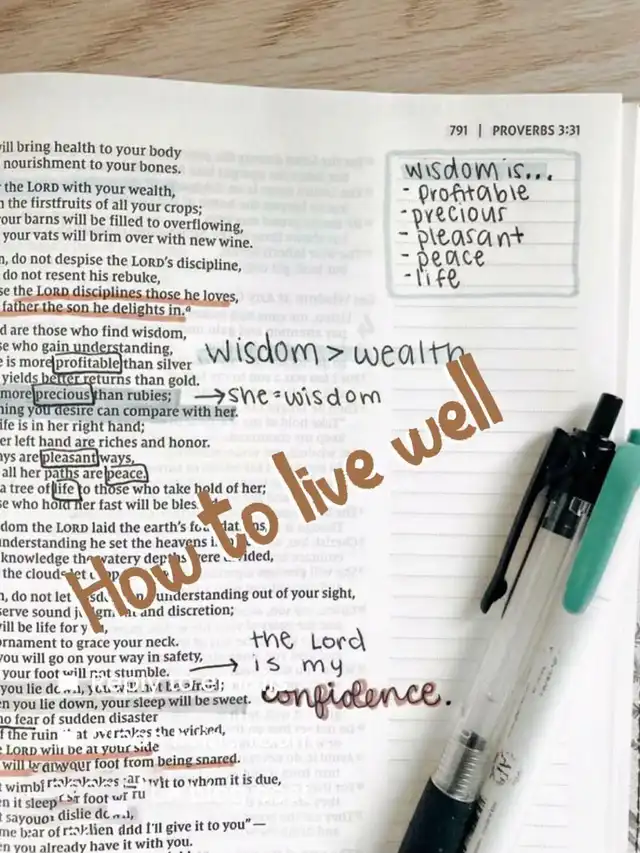 791 | PROVERBS 3:31
wisdom is...
- profitable
- precious
- pleasant
- peace
- life
will bring health to your body
nourishment to your bones.
the LORD with your wealth,
the firstfruits of all your crops;
our barns will be filled to overflowing,
your vats will brim over with new wine.
do not despise the LORD's discipline,
do not resent his rebuke,
the LORD disciplines those he loves,
father the son he delights in.ᵃ
are those who find wisdom,
who gain understanding,
is more profitable than silver
yields better returns than gold.
more precious than rubies;
you desire can compare with her.
is in her right hand;
er left hand are riches and honor.
ays are pleasant ways,
all her paths are peace.
a tree of life to those who take hold of her;
se who hold her fast will be
wisdom > wealth
→ she = wisdom
How to live well
dom the LORD laid the earth's
understanding he set the heavens
knowledge the watery depths were
the clouds let
do not let understanding out of your sight,
serve sound and discretion;
will be life for
ornament to grace your neck.
you will go on your way in safety,
your foot will not stumble.
you lie
you lie down, your sleep will be sweet.
no fear of sudden disaster
the ruin overtakes the wicked,
LORD will be at your side
will foot from being snared.
to whom it is due,
foot
of and I'll give it to you"—
you already have it with you.
→ the Lord
is my
confidence.